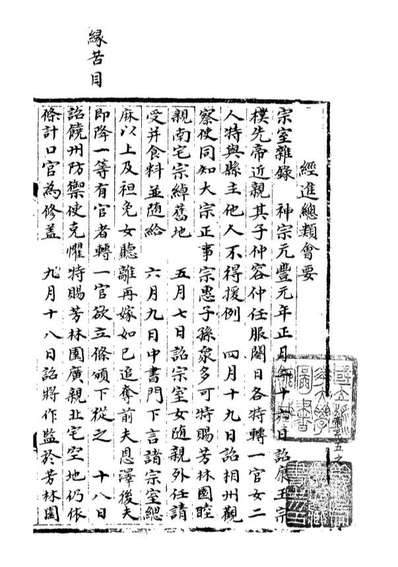 經進總類會要
宗室雜錄　神宗元豐元年正月年十六日詔康王宗
樸先帝近親其子仲容仲任服闋日各特轉一官女二
人特與縣主他人不得援例　四月十九日詔相州觀
察使同知大宗正事宗惠子孫衆多可特賜芳林園睦
親南宅宗綽舊地　五月七日詔宗室女隨親外任請
受并食料並随給　六月九日中書門下言諸宗室緦
麻以上及袒免女聽離再嫁如已追奪前夫恩澤後夫
即降一等有官者轉一官欲立條頒下從之　十八日
詔饒州防禦使克懼特賜芳林園廣親北宅空地仍依
條計口官為修蓋　九月十八日詔將作監於芳林園
緣苦目